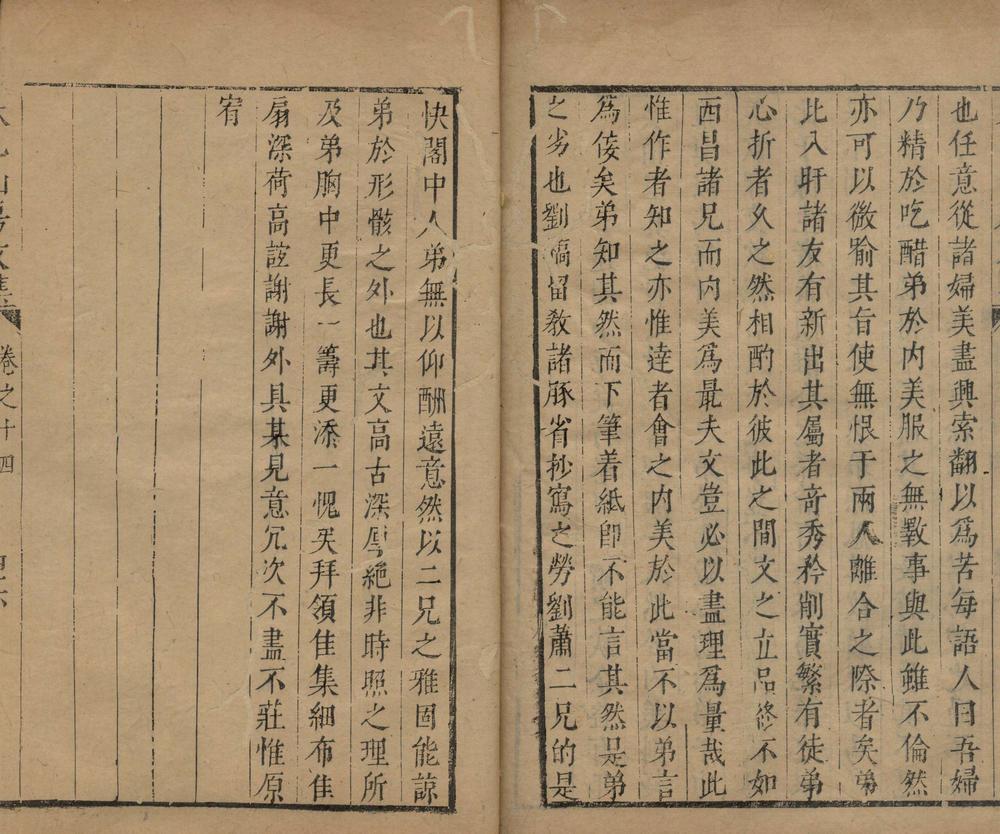 也任意從諸婦美盡興索翻以爲苦每語人曰吾婦
乃精於吃醋弟於內美服之無斁事與此雖不倫然
亦可以微喻其旨使無恨于兩人離合之際者矣弟
比入盱諸友有新出其屬者奇秀矜削實繁有徒弟
心折者久之然相酌於彼此之間文之立品終不如
西昌諸兄而内美爲最夫文豈必以盡理爲量哉此
惟作者知之亦惟達者會之内美於此當不以弟言
爲佞矣弟知其然而下筆着紙卽不能言其然是弟
之劣也劉稿留教諸豚省抄寫之勞劉蕭二兄的是
快閣中人弟無以仰酬遠意然以二兄之雅固能諒
弟於形骸之外也其文高古深厚絕非時照之理所
及弟胸中更長一籌更添一愧矣拜領佳集細布佳
扇深荷高誼謝謝外具某見意冗次不盡不莊惟原
宥
卷之十四